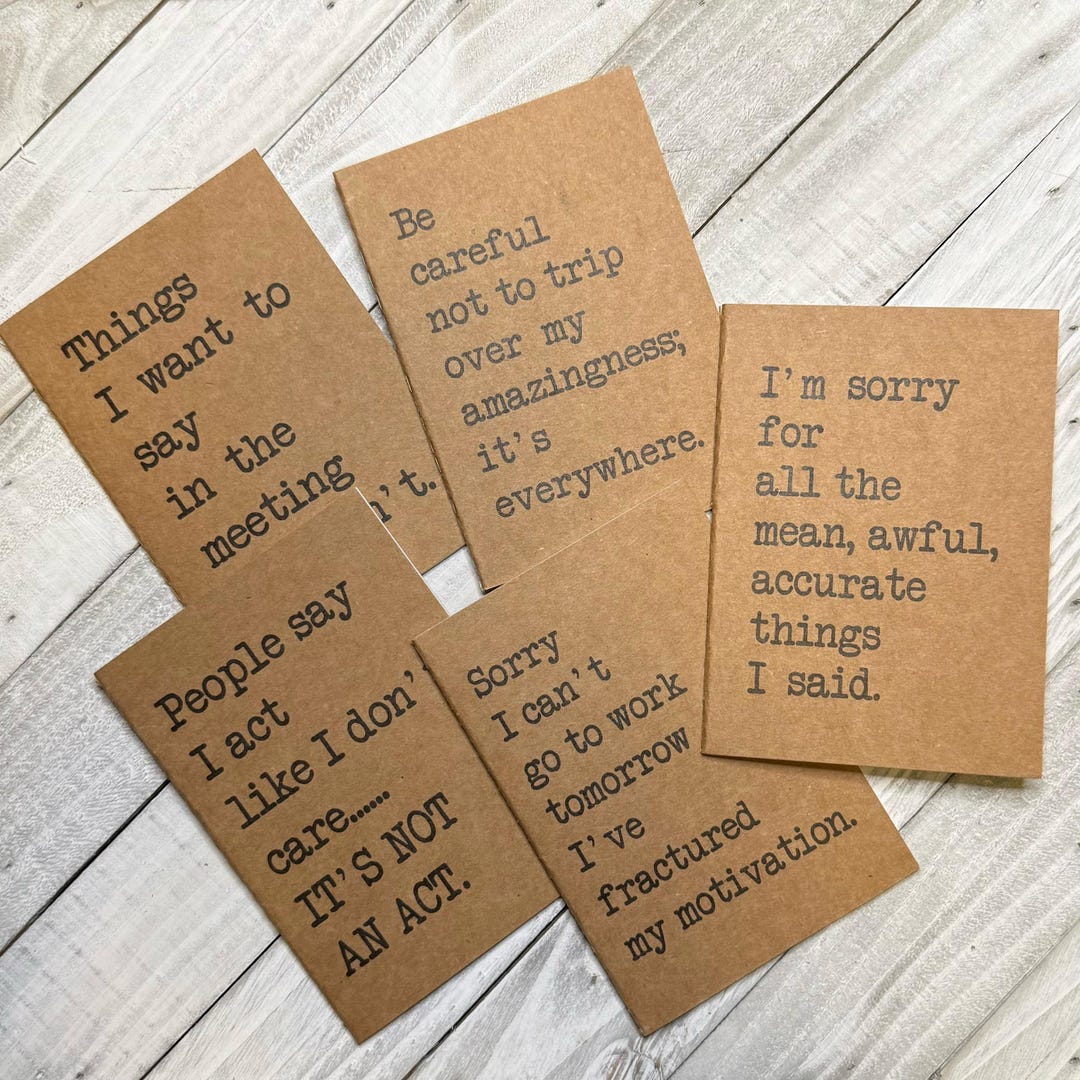 Things
I want to
say
in the
meeting
n't.
Be
careful
not to trip
over my
amazingness;
it's
everywhere.
I'm sorry
for
all the
mean, awful,
accurate
things
I said.
People say
I act
like I don'
care......
IT'S NOT
AN ACT.
Sorry
I can't
go to work
tomorrow
I've
fractured
my motivation.